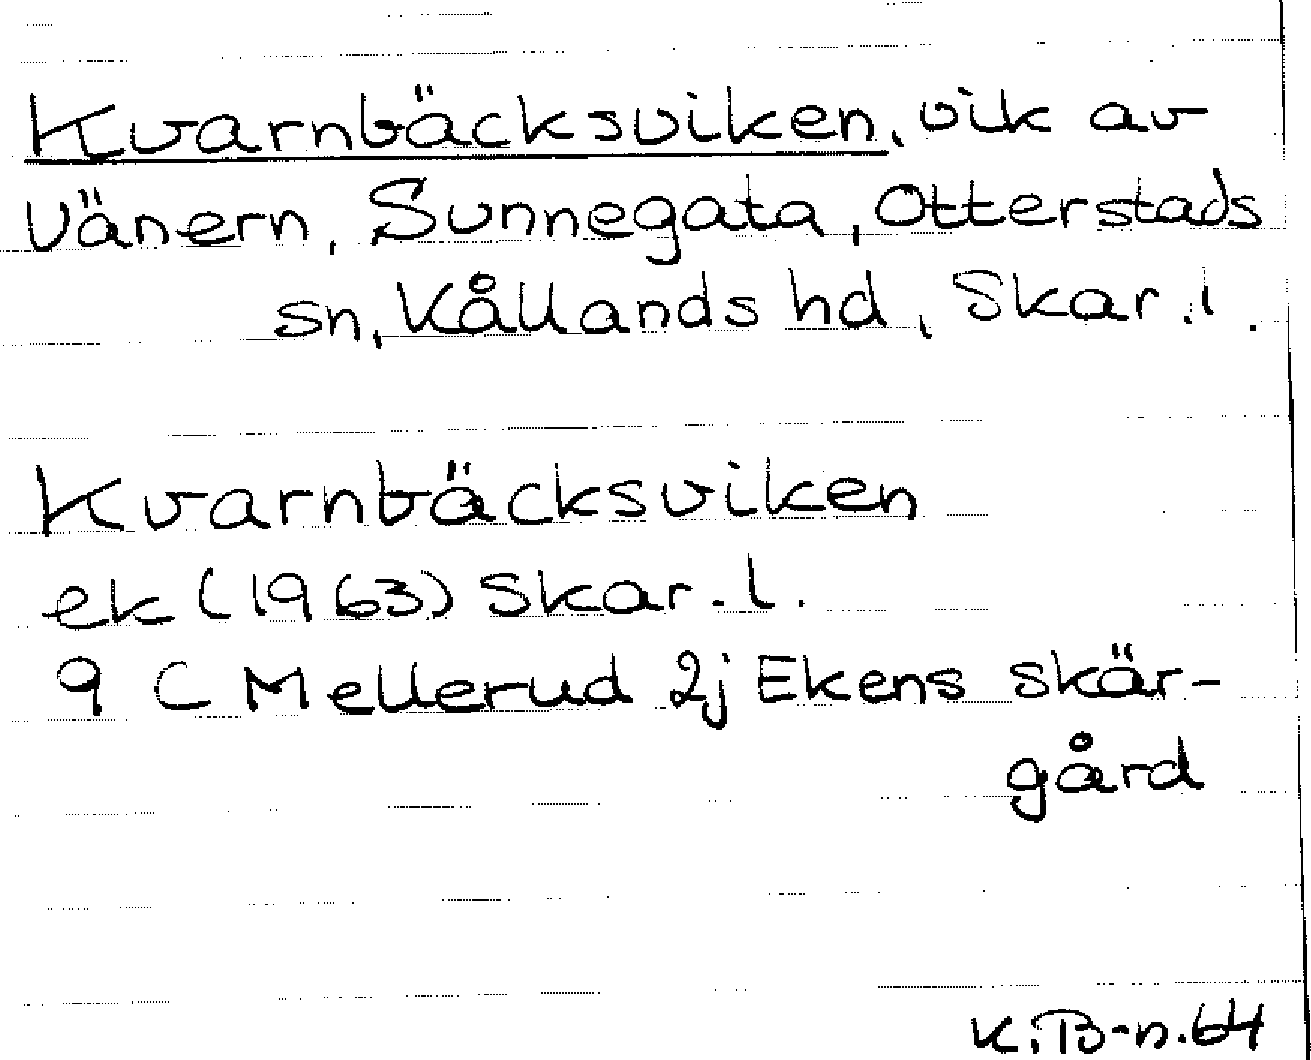 Kvarnbäcksviken, vik av
Vänern, Sunnegata, Otterstads
sn, Kållands hd, Skar.l.
Kvarnbäcksviken
ek (1963) Skar.l.
9 C Mellerud 2j Ekens skär-
gård
K.B-n.64